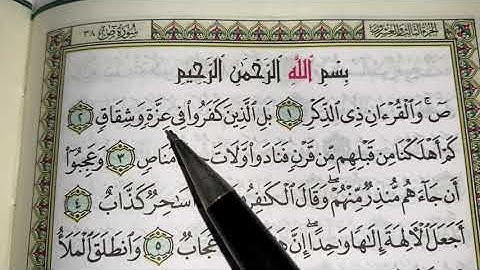 الجزء الثالث والعشرون
سورة ص ٣٨
بِسْمِ ٱللَّهِ ٱلرَّحْمَٰنِ ٱلرَّحِيمِ
صٓ ۚ وَٱلْقُرْءَانِ ذِى ٱلذِّكْرِ ١ بَلِ ٱلَّذِينَ كَفَرُوا۟ فِى عِزَّةٍ وَشِقَاقٍ ٢
كَمْ أَهْلَكْنَا مِن قَبْلِهِم مِّن قَرْنٍ فَنَادَوا۟ وَّلَاتَ مَنَاصٍ ٣ وَعَجِبُوٓا۟
أَن جَآءَهُم مُّنذِرٌ مِّنْهُمْ ۖ وَقَالَ ٱلْكَٰفِرُونَ سَٰحِرٌ كَذَّابٌ ٤
أَجَعَلَ ٱلْءَالِهَةَ إِلَٰهًا وَٰحِدًا ۖ إِنَّ هَٰ عُجَابٌ ٥ وَٱنطَلَقَ ٱلْمَلَأُ